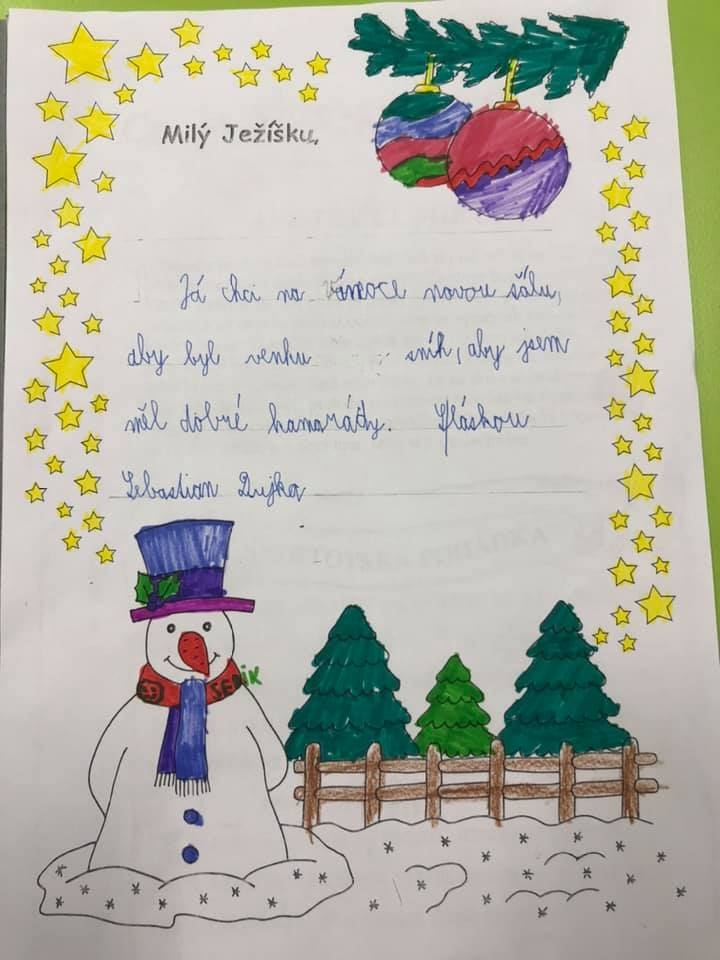 Milý Ježíšku,
Já chci na vánoce novou šálu,
aby byl venku sníh, aby jsem
měl dobré kamarády. S láskou
Sebastian Dujka
SEBIK